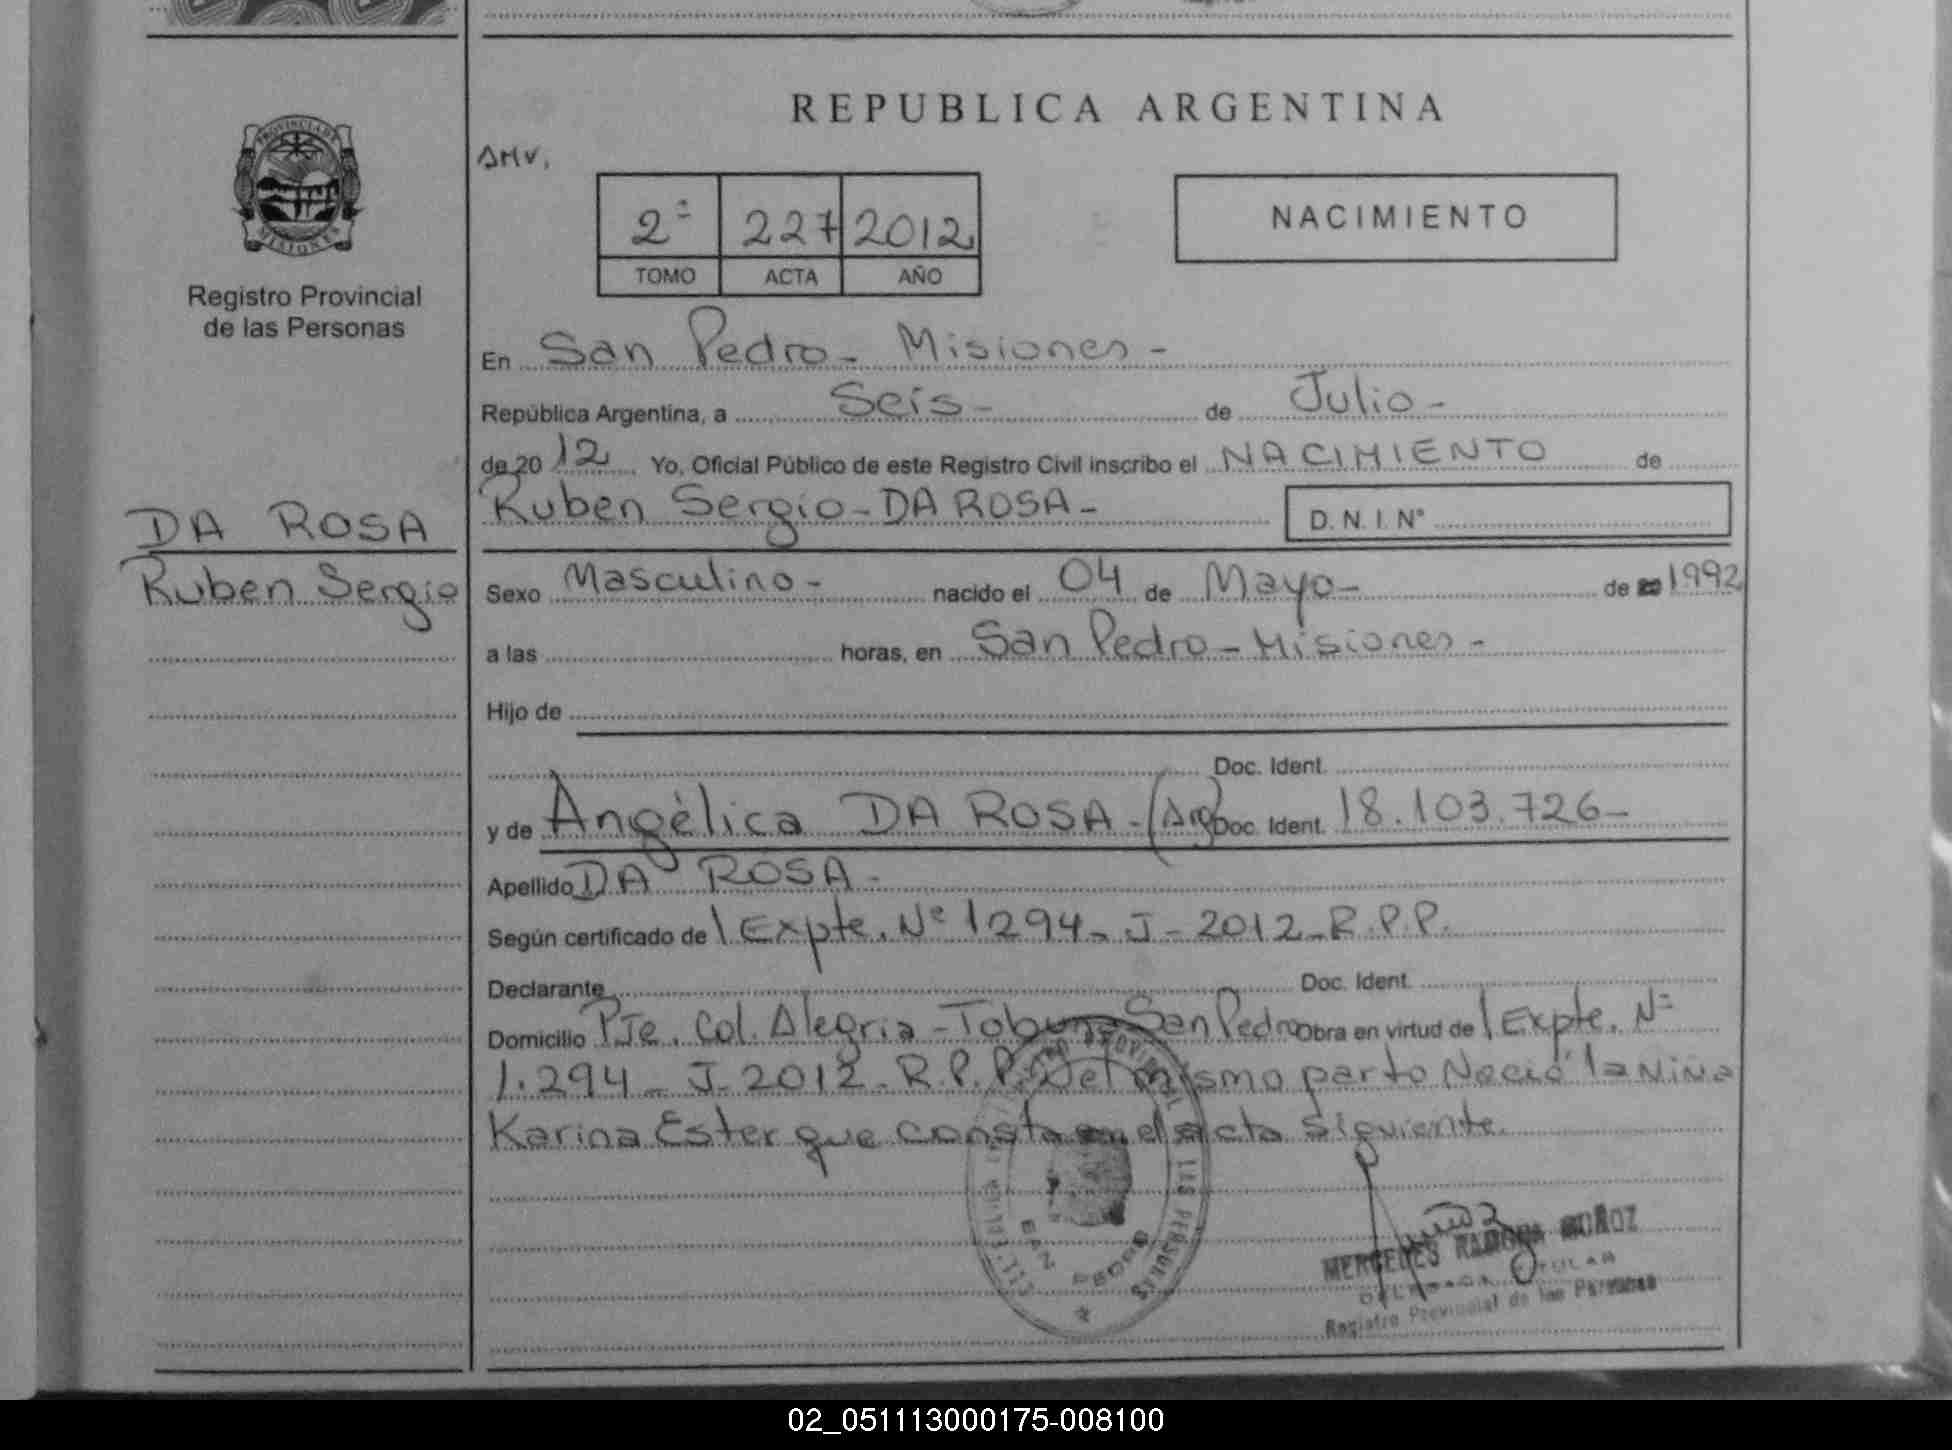 REPUBLICA ARGENTINA
PROVINCIA DE
MISIONES
Registro Provincial
de las Personas
2º 227 2012
TOMO ACTA AÑO
NACIMIENTO
En San Pedro - Misiones -
República Argentina, a Seis - de Julio -
de 20 12 Yo, Oficial Público de este Registro Civil inscribo el NACIMIENTO de
Ruben Sergio - DA ROSA - D. N. I. Nº
DA ROSA
Ruben Sergio
Sexo Masculino - nacido el 04 de Mayo - de 1992
a las horas, en San Pedro - Misiones -
Hijo de
Doc. Ident.
y de Angélica DA ROSA - (Arg) Doc. Ident. 18.103.726 -
Apellido DA ROSA -
Según certificado de / Expte. Nº 1294 - J - 2012 - R.P.P.
Declarante Doc. Ident.
Domicilio Pje. Col. Alegria - Tobuna - San Pedro Obra en virtud de / Expte. Nº
1.294 - J - 2012 - R.P.P. Del mismo parto Nació la Niña
Karina Ester que consta en el acta siguiente.
SAN PEDRO
MERCEDES RAMONA MUÑOZ
DELEGADA TITULAR
Registro Provincial de las Personas
02_051113000175-008100